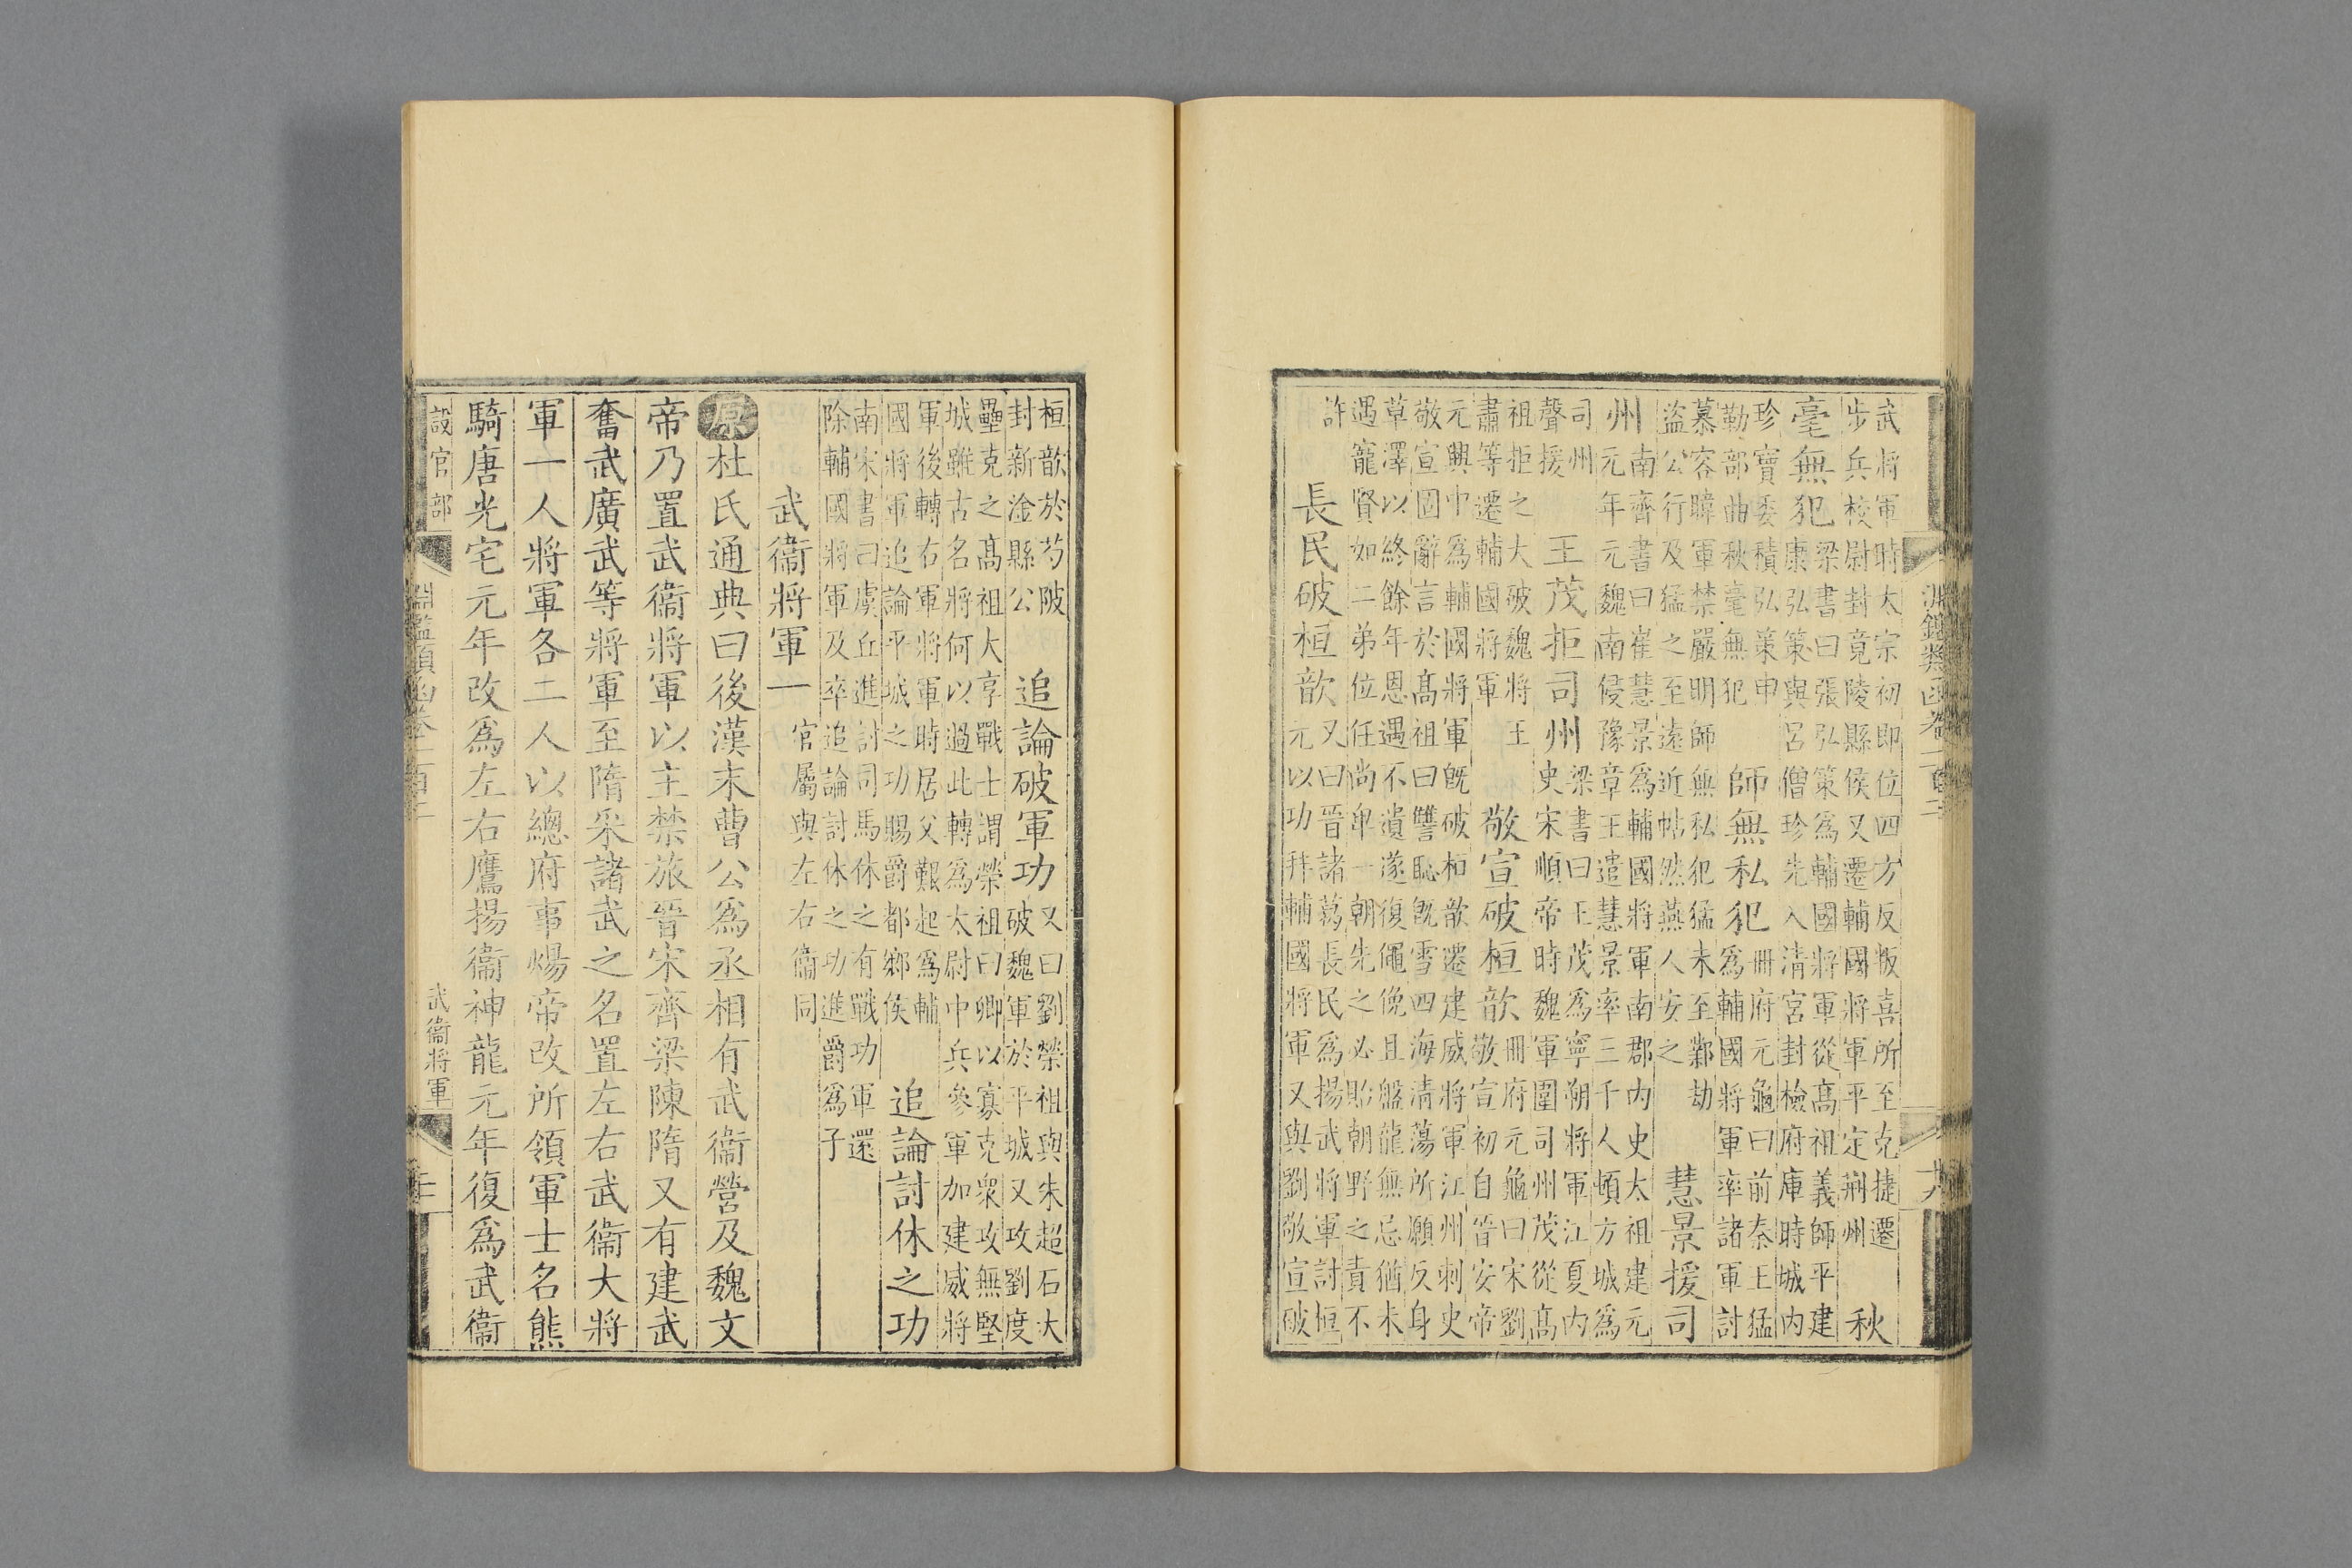 淵鑑類函卷一百十
武將軍時太宗初即位四方反叛喜所至克捷遷
步兵校尉封竟陵縣侯又遷輔國將軍平定荊州　秋
毫無犯　梁書曰張弘策為輔國將軍從高祖義師平建
康弘策與呂僧珍先入清宮封檢府庫時城內
珍寶委積弘策申
勒部曲秋毫無犯　師無私犯　冊府元龜曰前秦王猛
為輔國將軍率諸軍討
慕容暐軍禁嚴明師無私犯猛未至鄴劫
盜公行及猛之至遠近帖然燕人安之　慧景援司
州　南齊書曰崔慧景為輔國將軍南郡內史太祖建元
元年元魏南侵豫章王遣慧景率三千人頓方城為
司州
聲援　王茂拒司州　梁書曰王茂為寧朔將軍江夏內
史宋順帝時魏軍圍司州茂從髙
祖拒之大破魏將王
肅等遷輔國將軍　敬宣破桓歆　冊府元龜曰宋劉
敬宣初自晉安帝
元興中為輔國將軍既破桓歆遷建威將軍江州刺史
敬宣固辭言於髙祖曰讐恥既雪四海清蕩所願反身
草澤以終餘年恩遇不遺遂復僶俛且盤龍無忌猶未
遇寵賢如二弟位任尚卑一朝先之必貽朝野之責不
許　長民破桓歆　又曰晉諸葛長民為揚武將軍討桓
元以功拜輔國將軍又與劉敬宣破
桓歆於芍陂
封新淦縣公　追論破軍功　又曰劉榮祖與朱超石大
破魏軍於平城又攻劉度
壘克之髙祖大享戰士謂榮祖曰卿以寡克衆攻無堅
城雖古名將何以過此轉為太尉中兵參軍加建威將
軍後轉右軍將軍時居父艱起為輔
國將軍追論平城之功賜爵都鄉侯　追論討休之功
南宋書曰虞丘進討司馬休之有戰功軍還
除輔國將軍及卒追論討休之功進爵為子
武衞將軍一　官屬與左右衞同
原杜氏通典曰後漢末曹公為丞相有武衞營及魏文
帝乃置武衞將軍以主禁旅晉宋齊梁陳隋又有建武
奮武廣武等將軍至隋采諸武之名置左右武衞大將
軍一人將軍各二人以總府事煬帝改所領軍士名熊
騎唐光宅元年改為左右鷹揚衞神龍元年復為武衞
設官部　淵鑑類函卷一百十　武衞將軍